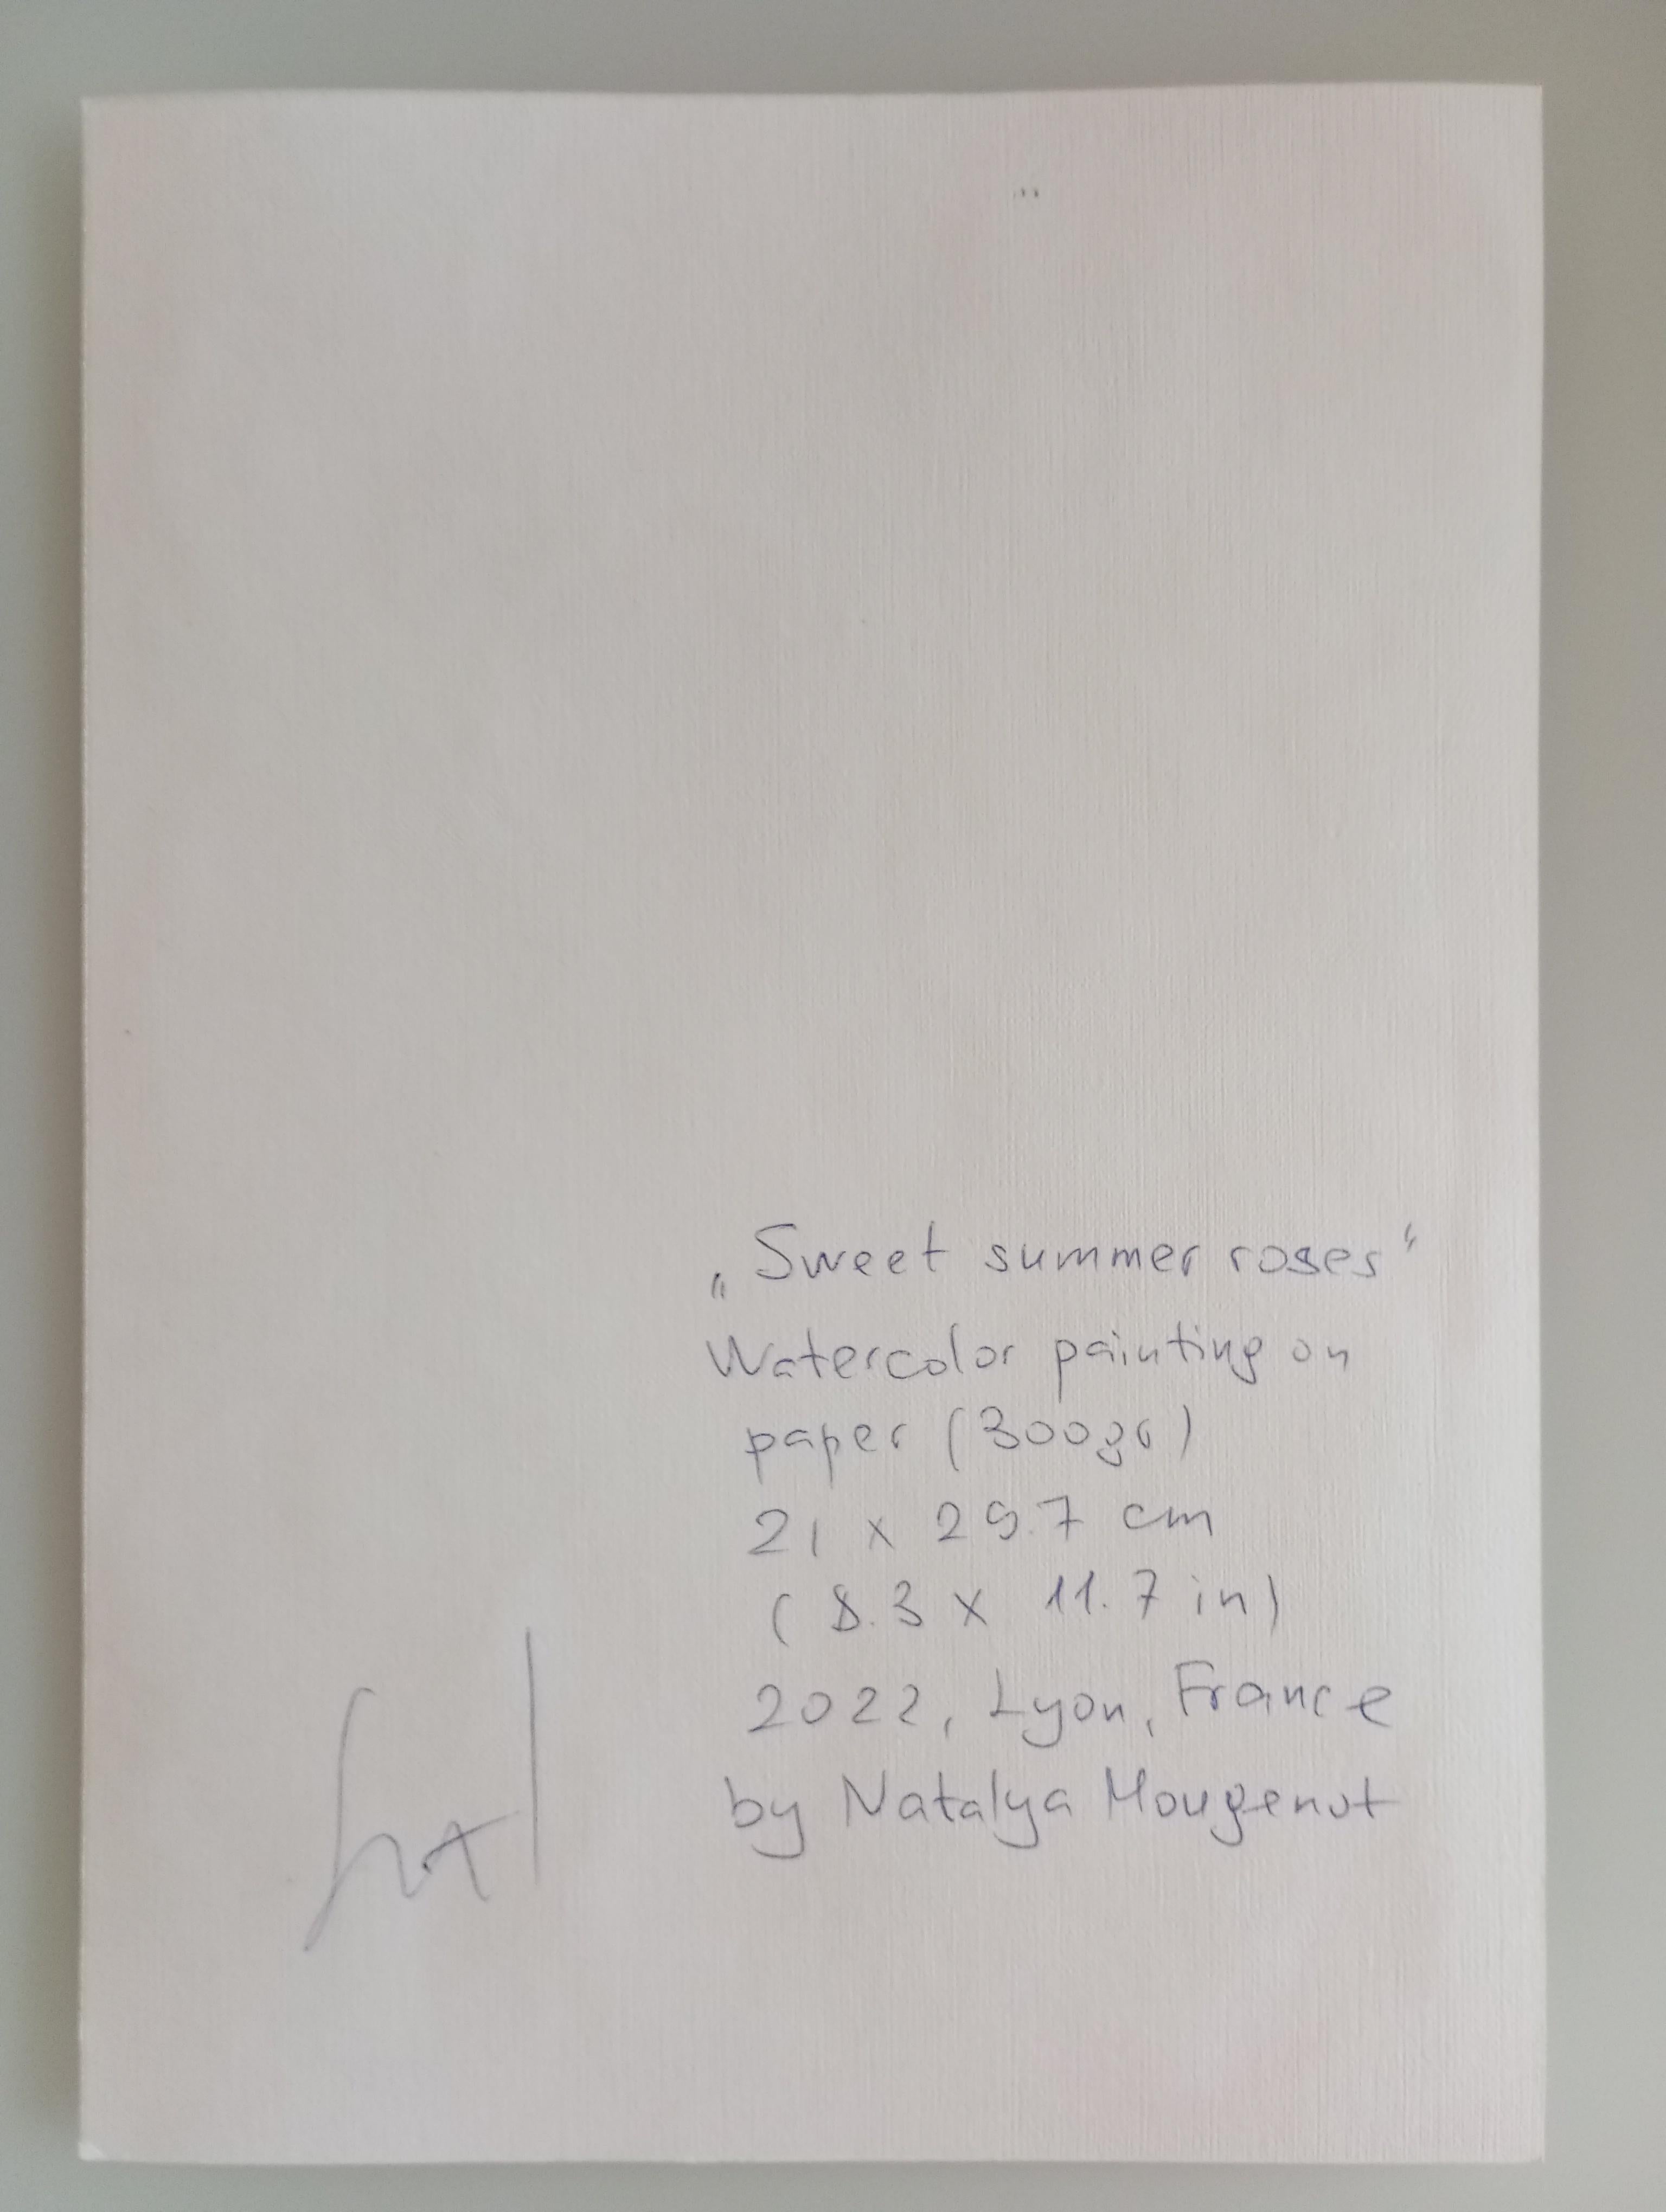 „Sweet summer roses“
Watercolor painting on
paper (300gr)
21 x 29.7 cm
(8.3 x 11.7 in)
2022, Lyon, France
by Natalya Mougenot